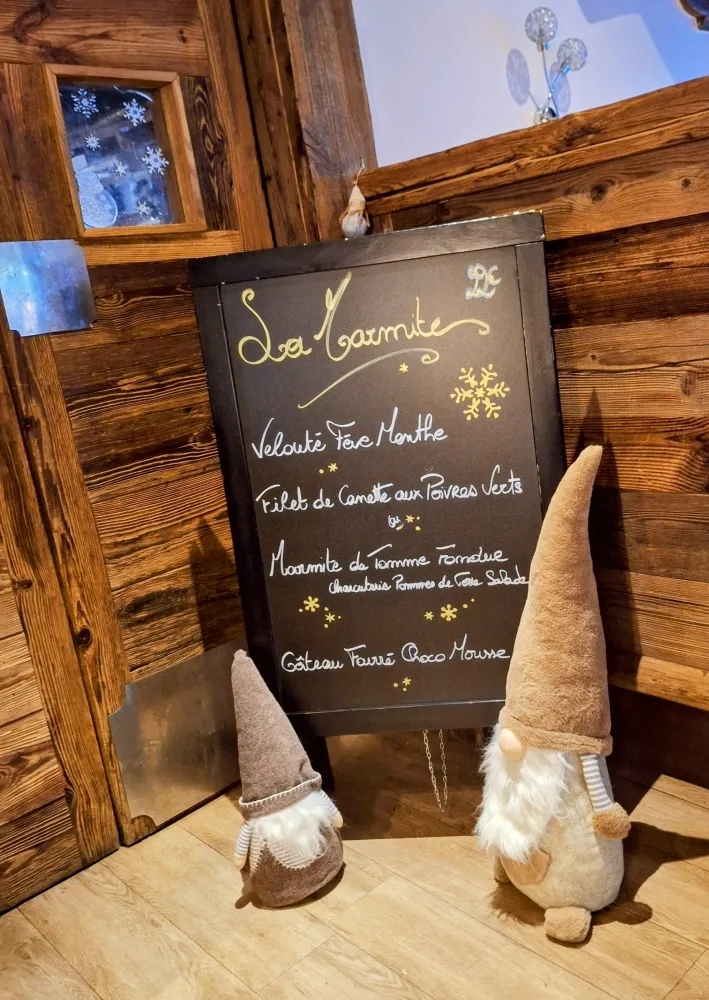 22€
La Marmite
Velouté Fève Menthe
Filet de Canette aux Poivres Verts
ou
Marmite de Tomme Fondue
Charcuterie Pommes de Terre Salade
Gâteau Fourré Choco Mousse